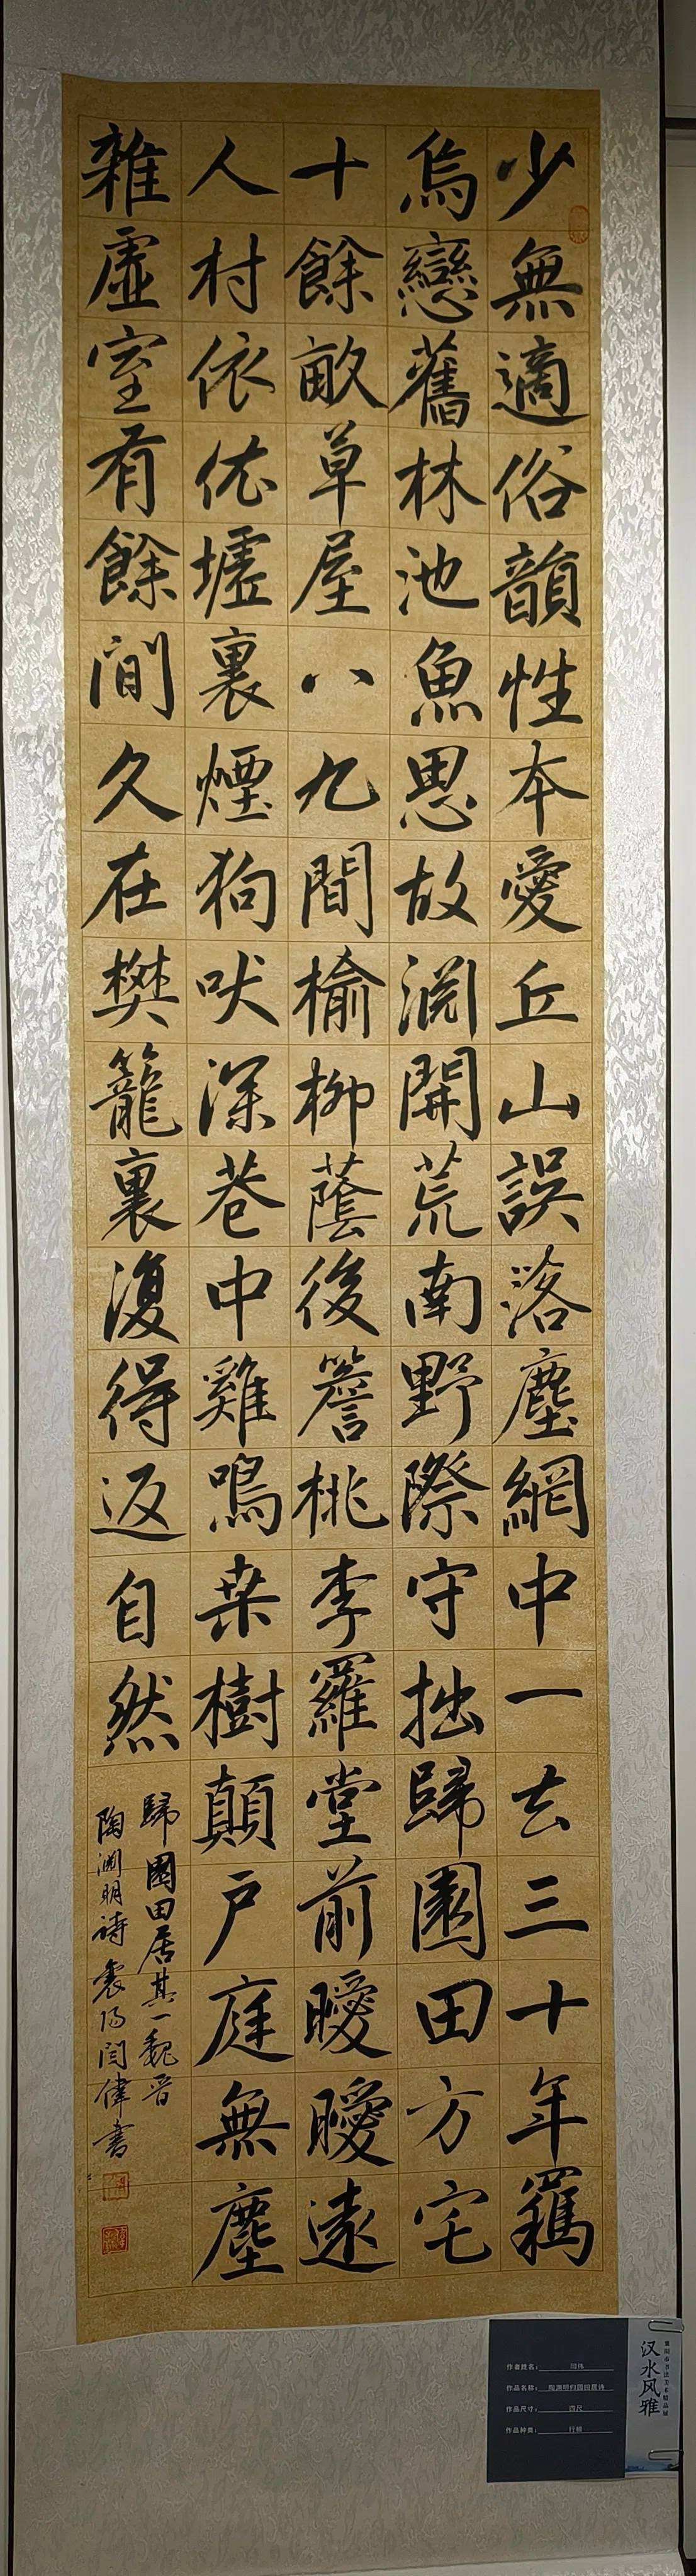 少無適俗韻性本愛丘山誤落塵網中一去三十年羈
烏戀舊林池魚思故淵開荒南野際守拙歸園田方宅
十餘畝草屋八九間榆柳蔭後簷桃李羅堂前曖曖遠
人村依依墟裏煙狗吠深巷中雞鳴桒樹顛户庭無塵
雜虛室有餘間久在樊籠裏復得返自然
歸園田居其一魏晋
陶淵明詩襄陽閆偉書
作者姓名：闫伟
作品名称：陶渊明归园田居诗
作品尺寸：四尺
作品种类：行楷
襄阳市书法美术精品展
汉水风雅